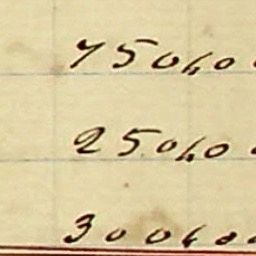 750,00
250,00
300,00